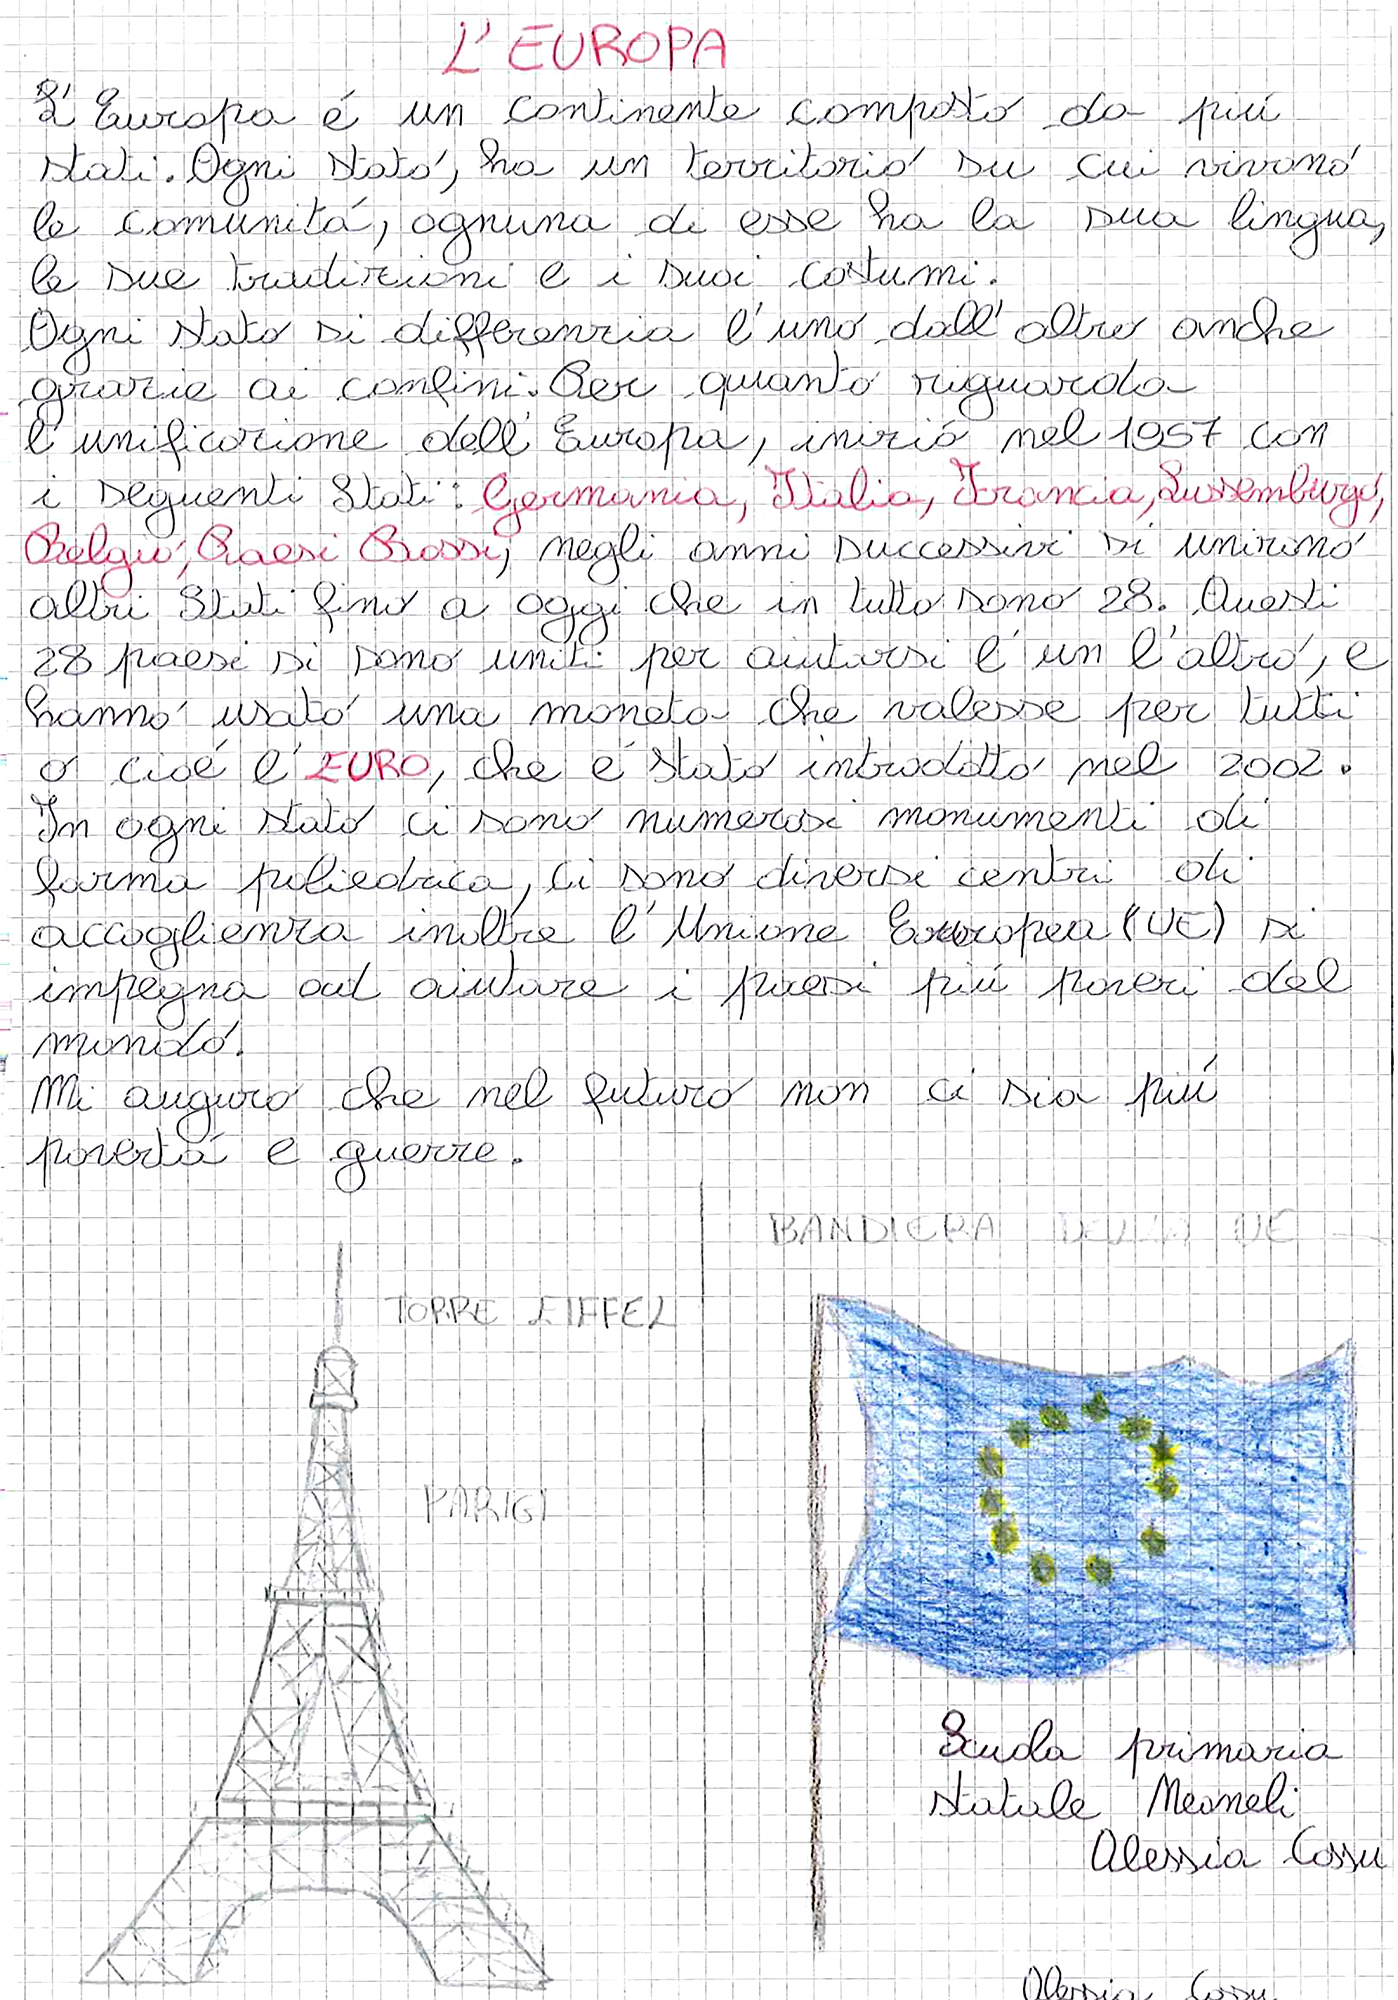 L'EUROPA
L'Europa é un continente composto da piú
stati. Ogni stato, ha un territorio su cui vivono
le comunitá, ognuna di esse ha la sua lingua,
le sue tradizioni e i suoi costumi.
Ogni stato si differenzia l'uno dall'altro anche
grazie ai confini. Per quanto riguarda
l'unificazione dell'Europa, inizió nel 1957 con
i seguenti Stati: Germania, Italia, Francia, Lussemburgo,
Belgio, Paesi Bassi, negli anni successivi si unirono
altri Stati fino a oggi che in tutto sono 28. Questi
28 paesi si sono uniti per aiutarsi l'un l'altro, e
hanno usato una moneta che valesse per tutti
o cioé l'EURO, che é stato introdotto nel 2002.
In ogni stato ci sono numerosi monumenti di
forma poliedrica, ci sono diversi centri di
accoglienza inoltre l'Unione Europea (UE) si
impegna ad aiutare i paesi piú poveri del
mondo.
Mi auguro che nel futuro non ci sia piú
povertá e guerre.
BANDIERA DELLA UE
TORRE EIFFEL
PARIGI
Scuola primaria
statale Meaneli
Alessia Cossu
Alessia Cossu